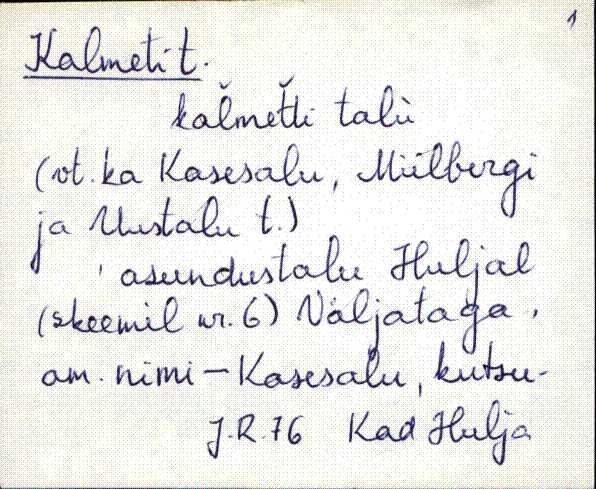 1
Kalmeti t.
kalmetti talu
(vt. ka Kasesalu, Miilbergi
ja Uustalu t.)
asundustalu Huljal
(skeemil nr. 6) Väljataga,
am. nimi – Kasesalu, kutsu-
J.R. 76 Kad Hulja